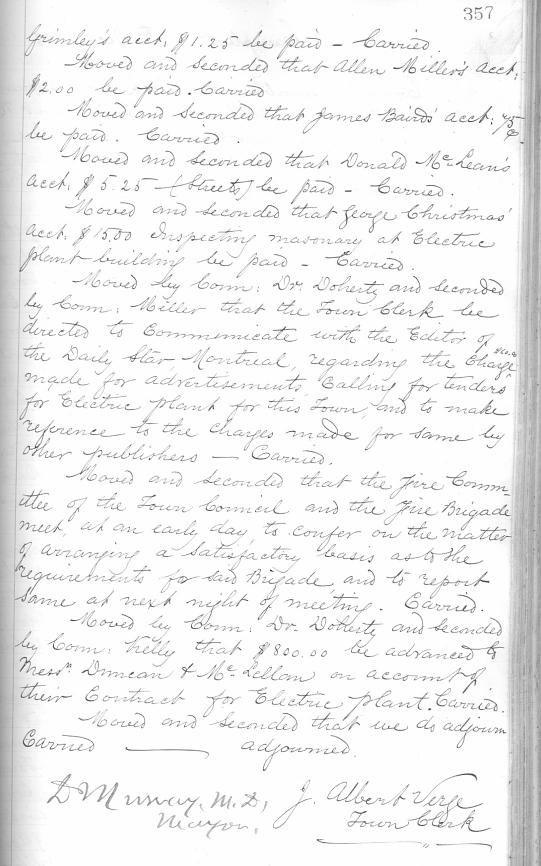 357
Grimley's acct: $1.25 be paid - Carried.
Moved and seconded that Allen Miller's acct:
$2.00 be paid. Carried
Moved and seconded that James Baird's acct: 75¢
be paid. Carried.
Moved and seconded that Donald McLean's
acct: $5.25 - (Streets) be paid - Carried.
Moved and seconded that George Christmas'
acct. $15.00 Inspecting masonary at Electric
plant building be paid - Carried.
Moved by Conn: Dr. Doherty and seconded
by Conn: Miller that the Town Clerk be
directed to Communicate with the Editor of
the Daily Star Montreal, regarding the Charge
made for advertisements Calling for tenders
for Electric plant for this Town, and to make
reference to the charges made for same by
other publishers - Carried.
Moved and seconded that the Fire Comm-
ttee of the Town Council and the Fire Brigade
meet, at an early day to confer on the matter
of arranging a satisfactory basis as to the
requirements for said Brigade and to report
same at next night of meeting. Carried.
Moved by Conn: Dr. Doherty and seconded
by Conn: Kelly that $800.00 be advanced to
Messrs. Duncan & McLellan on account of
their Contract for Electric plant. Carried.
Moved and seconded that we do adjourn
Carried — adjourned.
D Murray, M.D, J. Albert Verge
Mayor. Town Clerk